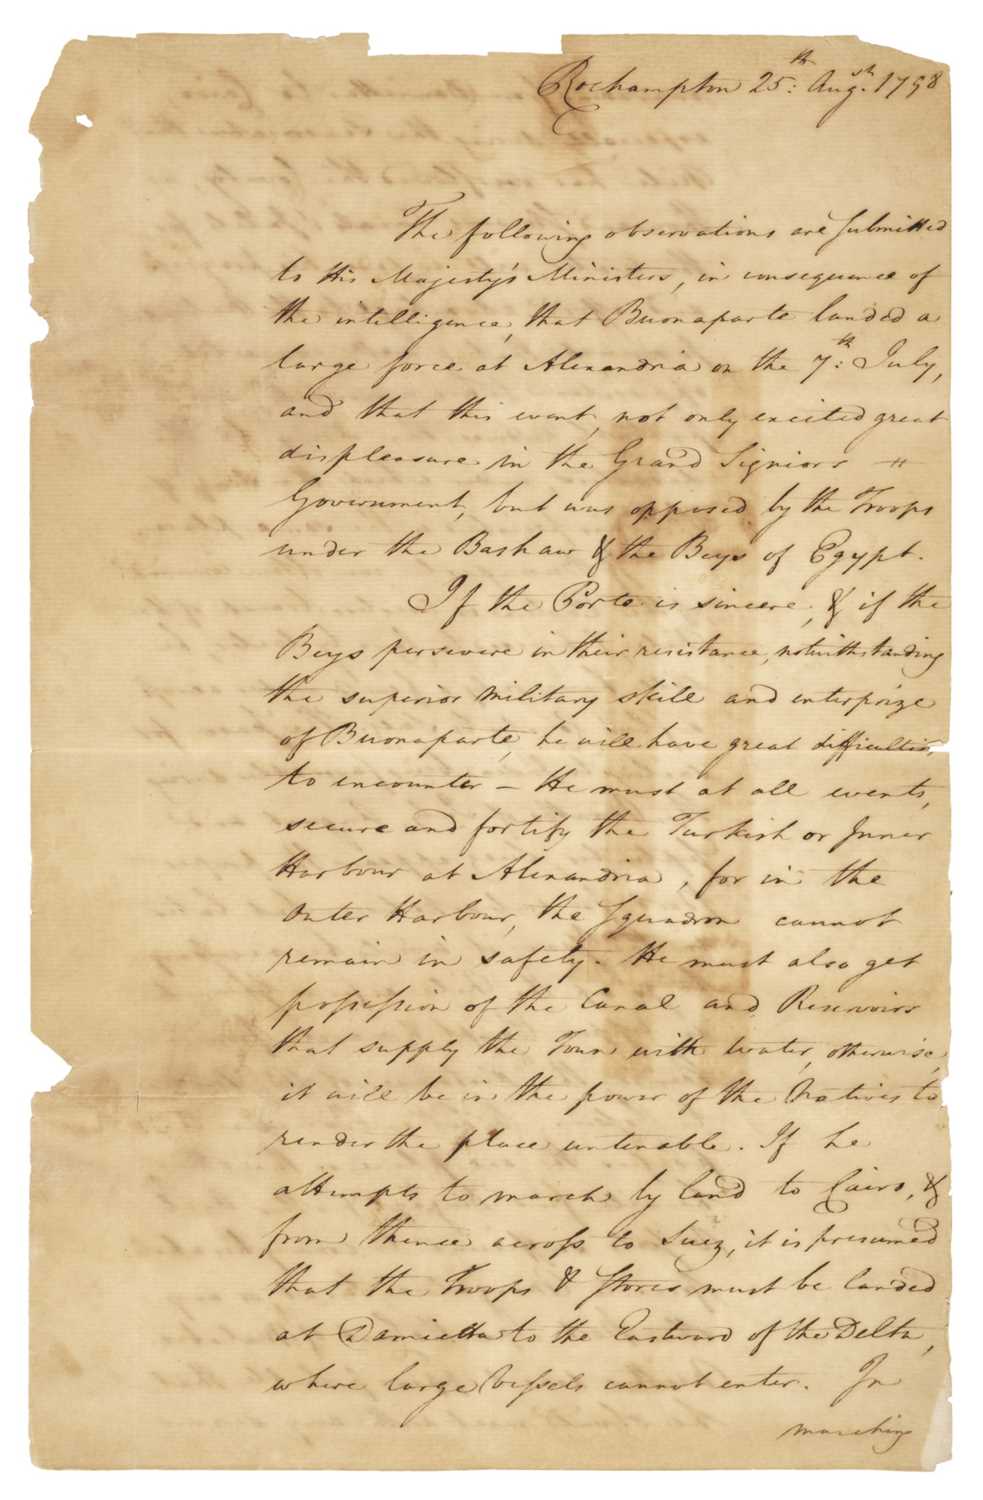 Rochampton 25th: Augst. 1798
The following observations are submitted
to His Majesty's Ministers, in consequence of
the intelligence, that Buonaparte landed a
large force at Alexandria on the 7th: July,
and that this event, not only excited great
displeasure in the Grand Signiors
Government, but was opposed by the Troops
under the Bashaw & the Beys of Egypt.
If the Porte is sincere, & if the
Beys persevere in their resistance, notwithstanding
the superior military skill and enterprize
of Buonaparte, he will have great difficulties,
to encounter – He must at all events,
secure and fortify the Turkish or Inner
Harbour at Alexandria, for in the
Outer Harbour, the Squadron cannot
remain in safety. He must also get
possession of the Canal and Reservoirs
that supply the Town with water, otherwise,
it will be in the power of the Natives to
render the place untenable. If he
attempts to march by land to Cairo, &
from thence across to Suez, it is presumed
that the Troops & Stores must be landed
at Damietta to the Eastward of the Delta,
where large Vessels cannot enter. In
marching